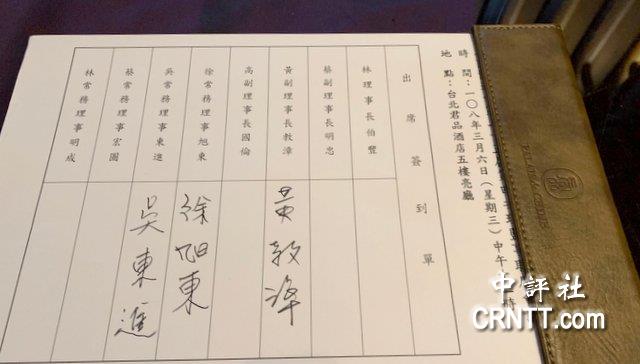 時 間：一〇八年三月六日（星期三）中午
地 點：台北君品酒店五樓亮廳
出席簽到單
林理事長伯豐
蔡副理事長明忠
黃副理事長教漳 黃教漳
高副理事長國倫
徐常務理事旭東 徐旭東
吳常務理事東進 吳東進
蔡常務理事宏圖
林常務理事明成
PALAIS de CHINE
中評社
CRNTT.com